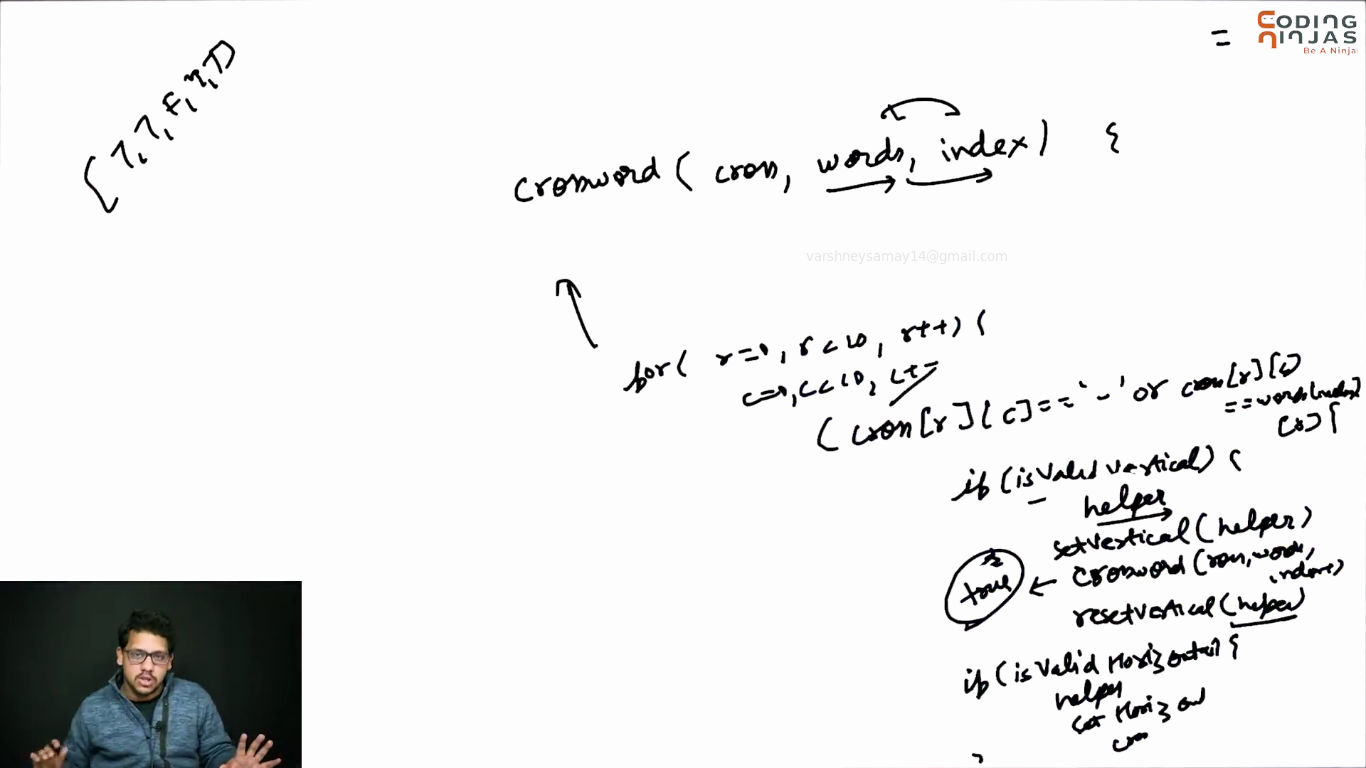 =
CODING
NINJAS
Be A Ninja
[T, T, F, T, T]
crossword ( cross, words, index) {
varshneysamay14@gmail.com
for( r=0, r<10, r++) {
c=0, c<10, c+=
( cross[r][c]=='-' or cross[r][c]
==words[index]
[0]) {
if (isValid vertical) {
helper
setvertical(helper)
true ← crossword (cross, words,
index+1)
resetvertical(helper)
if (isValid Horizontal {
helper
set Horizontal
cross
}